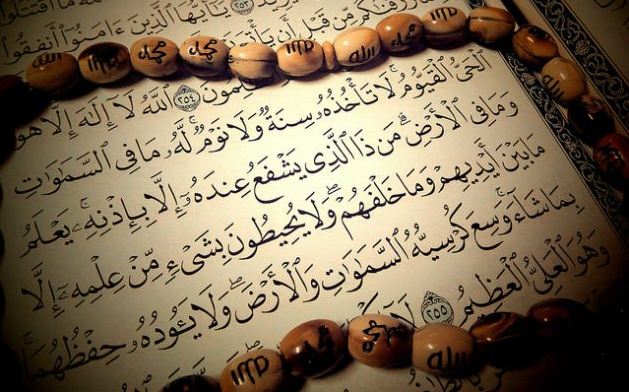 مَا ٱقْتَتَلُوا۟
٢٥٣ يَٰٓأَيُّهَا ٱلَّذِينَ ءَامَنُوٓا۟ أَنفِقُوا۟
رَزَقْنَٰكُم مِّن قَبْلِ أَن
ٱللَّهُ لَآ إِلَٰهَ إِلَّا هُوَ ٢٥٤
ٱلْحَىُّ ٱلْقَيُّومُ ۚ لَا تَأْخُذُهُۥ سِنَةٌ وَلَا نَوْمٌ ۚ لَّهُۥ مَا فِى ٱلسَّمَٰوَٰتِ
وَمَا فِى ٱلْأَرْضِ ۗ مَن ذَا ٱلَّذِى يَشْفَعُ عِندَهُۥٓ إِلَّا بِإِذْنِهِۦ ۚ يَعْلَمُ
مَا بَيْنَ أَيْدِيهِمْ وَمَا خَلْفَهُمْ ۖ وَلَا يُحِيطُونَ بِشَىْءٍ مِّنْ عِلْمِهِۦٓ إِلَّا
بِمَا شَآءَ ۚ وَسِعَ كُرْسِيُّهُ ٱلسَّمَٰوَٰتِ وَٱلْأَرْضَ ۖ وَلَا يَـُٔودُهُۥ حِفْظُهُمَا ۚ
وَهُوَ ٱلْعَلِىُّ ٱلْعَظِيمُ ٢٥٥ لَآ
الله
محمد
محمد
الله
محمد
الله
محمد
الله